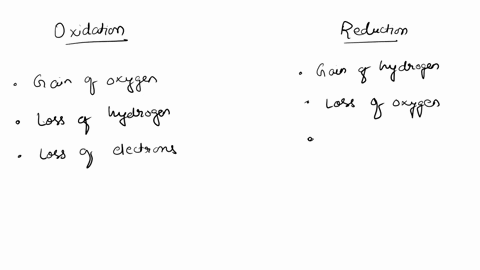 Oxidation
• Gain of oxygen
• Loss of hydrogen
• Loss of electrons
Reduction
• Gain of hydrogen
• Loss of oxygen
•